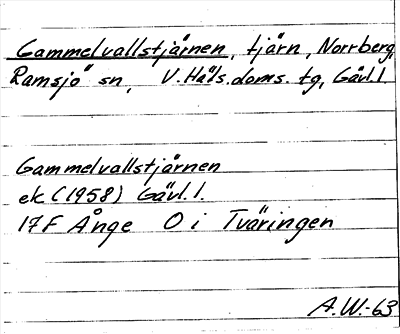 Gammelvallstjärnen, tjärn, Norrberg,
Ramsjö sn, V. Häls. doms. tg, Gävl. l
Gammelvallstjärnen
ek (1958) Gävl. l.
17F Ånge O i Tväringen
A.W.-63